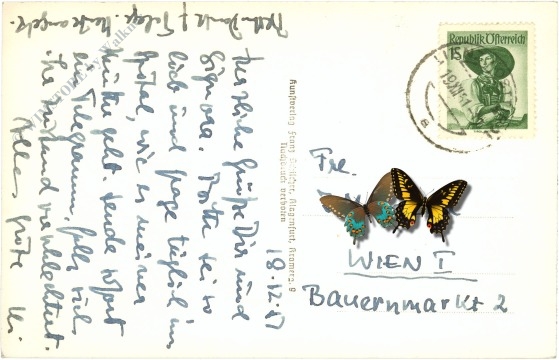 18.12.57
Herzliche Grüße Dir und
Signora. Bitte sei so
lieb und frage täglich im
Spital, wie es meiner
Mutter geht. Sende sofort
ein Telegramm, falls sich
ihr Zustand verschlechtert.
Alles Gute
Kunstverlag Franz Schilcher, Klagenfurt, Kromerg. 8
Nachdruck verboten
Republik Österreich
15
Fre.
WIEN I
Bauernmarkt 2